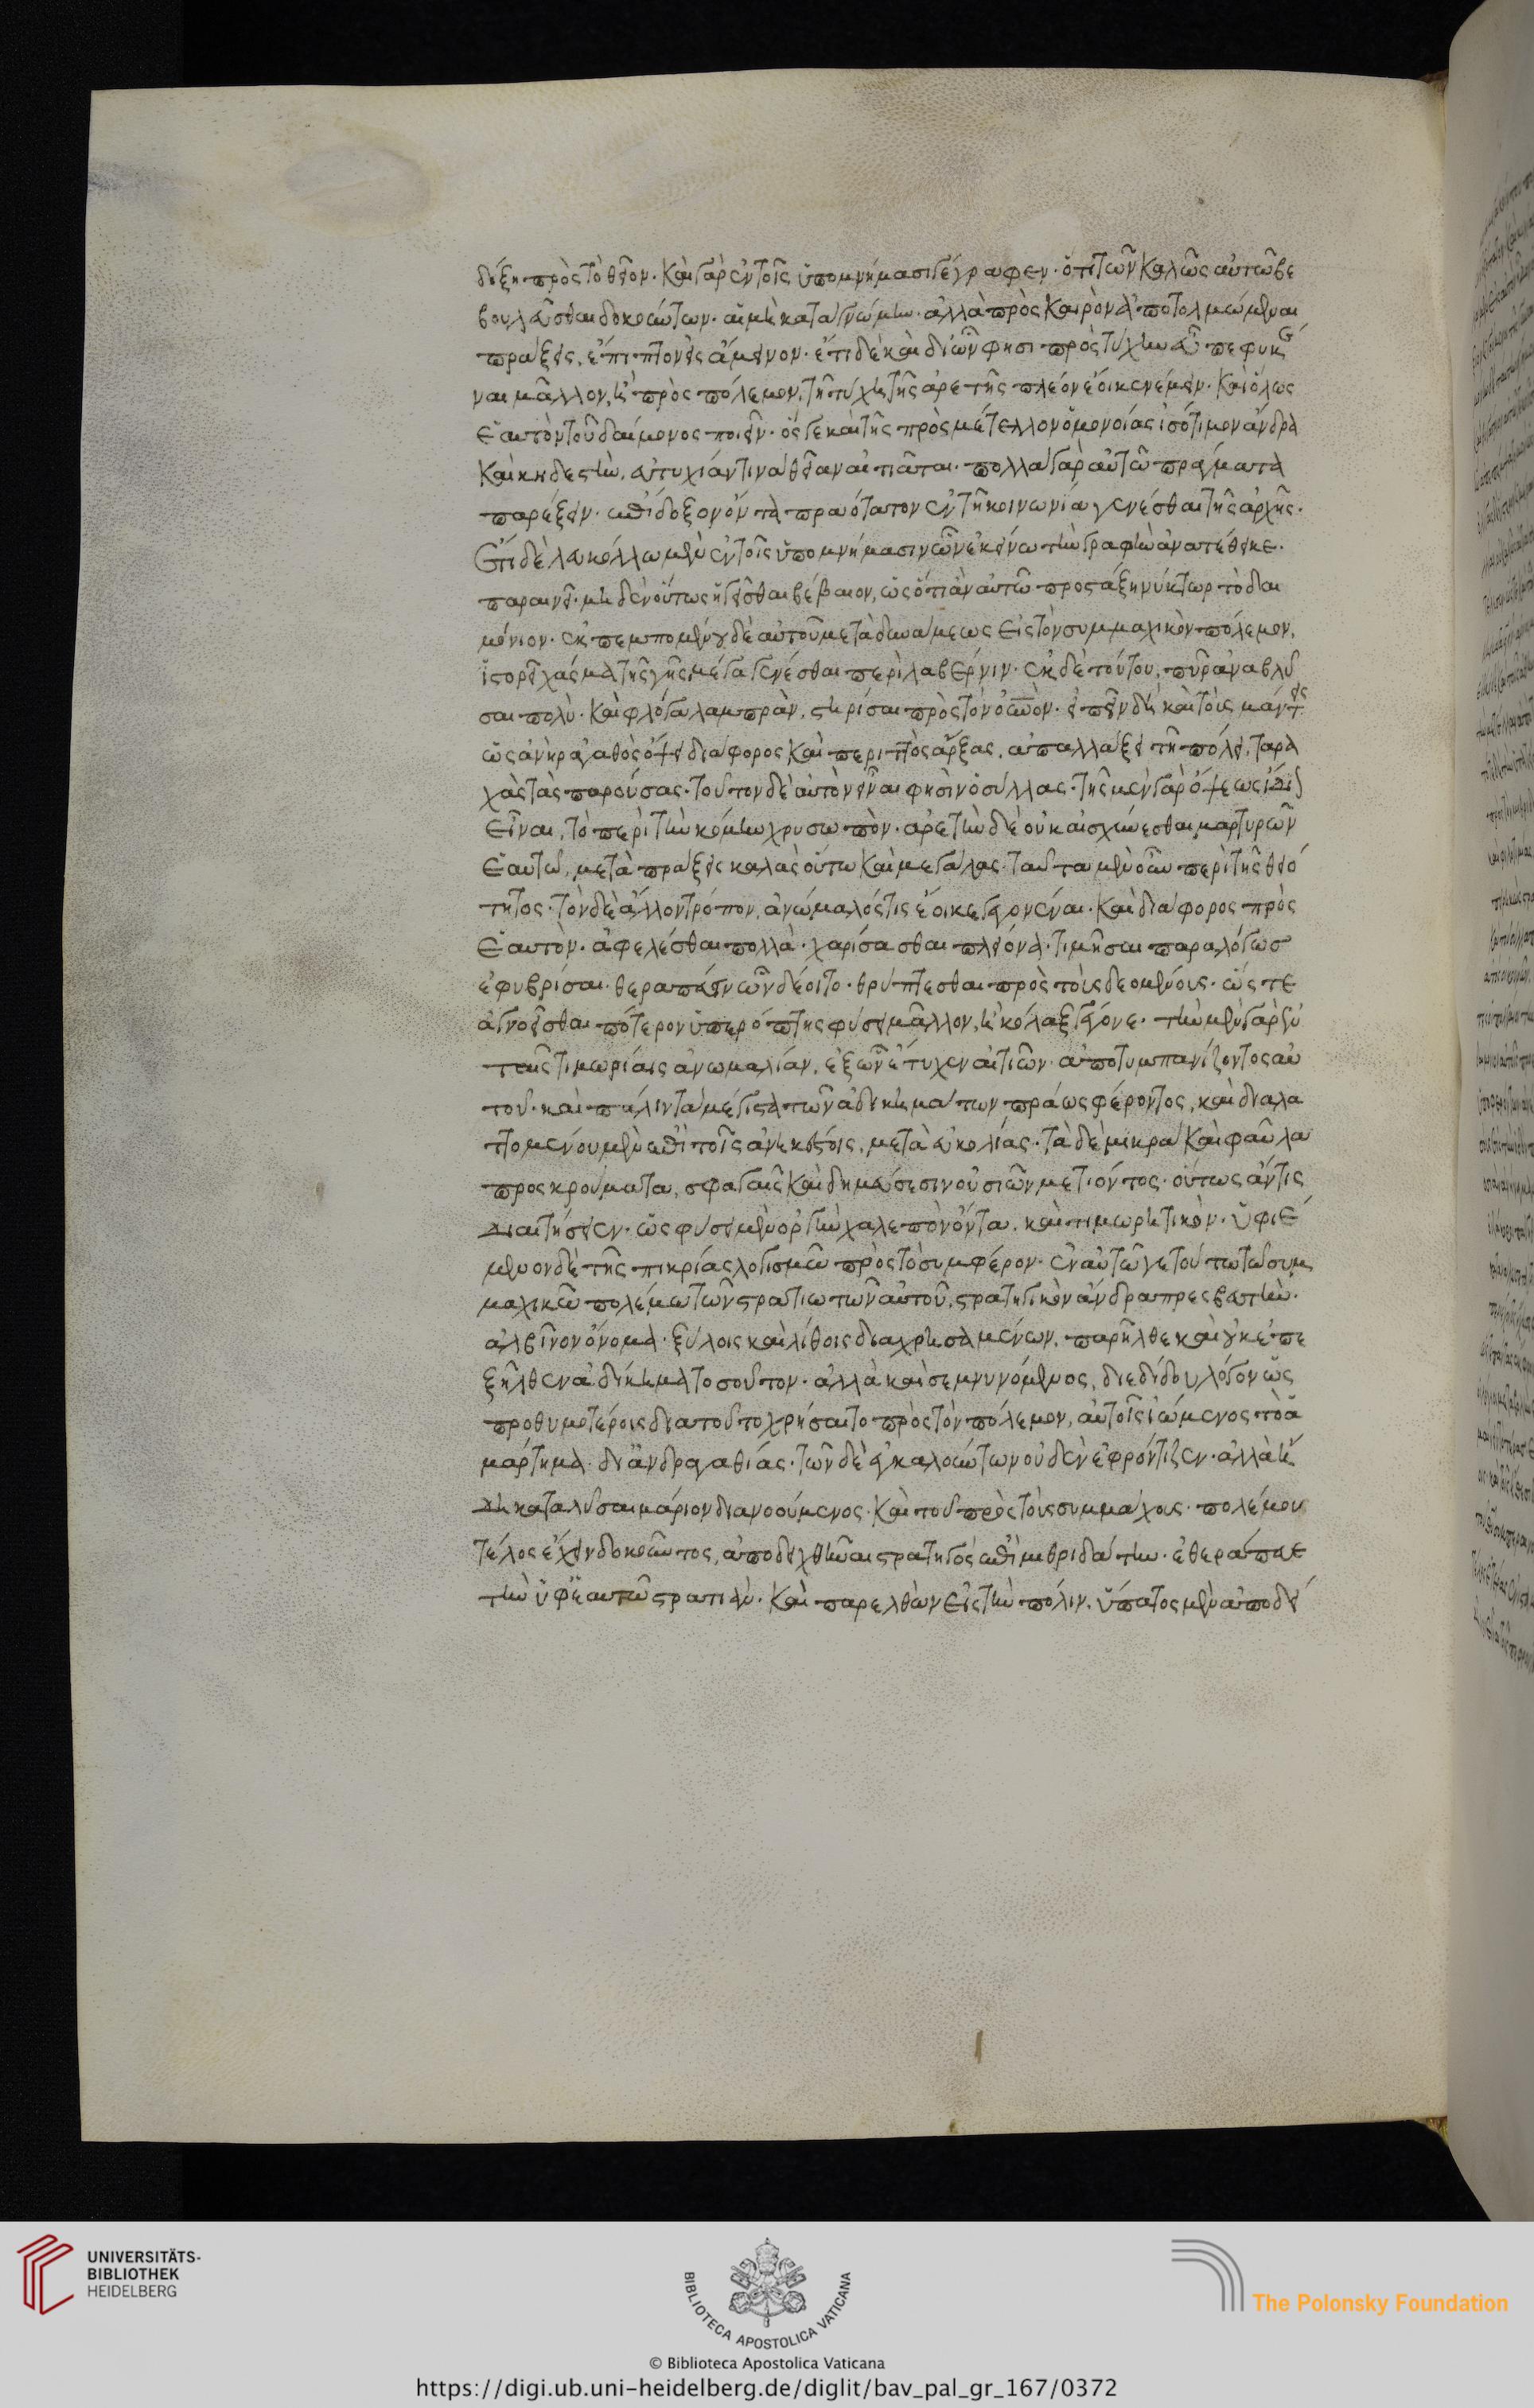 δόξῃ πρὸς τὸ θεῖον. καὶ γὰρ ἐν τοῖς ὑπομνήμασι γέγραφεν. ὅτι τῶν καλῶς αὐτῶ βε
βουλεῦσθαι δοκούντων. αἱ μὴ κατὰ γνώμην. ἀλλὰ πρὸς καιρὸν ἀποτολμώμεναι
πράξεις, ἔπιπτον εἰς ἄμεινον. ἔτι δὲ καὶ δι' ὧν φησι πρὸς τύχην εὖ πεφυκέ
ναι μᾶλλον, ἢ πρὸς πόλεμον, τῇ τύχῃ τῆς ἀρετῆς πλέον ἔοικε νέμειν. καὶ ὅλως
ἑαυτὸν τοῦ δαίμονος ποιεῖν. ὅς γε καὶ τῆς πρὸς μέτελλον ὁμονοίας ἰσότιμον ἄνδρα
καὶ κηδεστὴν, εὐτυχίαν τινὰ θείαν αἰτιᾶται. πολλὰ γὰρ αὐτῶ πράγματα
παρέξειν. ἐπίδοξον ὄντα πραότατον ἐν τῇ κοινωνίᾳ γενέσθαι τῆς ἀρχῆς.
Ἔτι δὲ λευκόλλω μὲν ἐν τοῖς ὑπομνήμασιν ὧν ἐκείνω τὴν γραφὴν ἀνατέθεικε.
παραινεῖ. μηδὲν οὕτως ἡγεῖσθαι βέβαιον, ὡς ὅτι ἂν αὐτῶ προστάξῃ νύκτωρ τὸ δαι
μόνιον. ἐκπεμπομένου δὲ αὐτοῦ μετὰ δυνάμεως εἰς τὸν συμμαχικὸν πόλεμον,
ἱστορεῖ χάσμα τῆς γῆς μέγα γενέσθαι περὶ λαβέρνην. ἐκ δὲ τούτου, πῦρ ἀναβλύ
σαι πολὺ. καὶ φλόγα λαμπρὰν, στηρίσαι πρὸς τὸν οὐνὸν. εἰπεῖν δὴ καὶ τοὺς μάντεις
ὡς ἀνὴρ ἀγαθὸς ὄψει διάφορος καὶ περιττὸς ἄρξας, ἀπαλλάξει τῇ πόλει, ταρα
χὰς τὰς παρούσας. τοῦτον δὲ αὐτὸν εἶναι φησὶν ὁ σύλλας. τῆς μὲν γὰρ ὄψεως ἴδιον
εἶναι, τὸ περὶ τὴν κόμην χρυσωπὸν. ἀρετὴν δὲ οὐκ αἰσχύνεσθαι μαρτυρῶν
ἑαυτῶ, μετὰ πράξεις καλὰς οὕτω καὶ μεγάλας. ταῦτα μὲν οὖν περὶ τῆς θειό
τητος. τὸν δὲ ἄλλον τρόπον, ἀνώμαλός τις ἔοικε γεγονέναι. καὶ διάφορος πρὸς
ἑαυτὸν. ἀφελέσθαι πολλὰ. χαρίσασθαι πλείονα. τιμῆσαι παραλόγως
ἐφυβρίσαι. θεραπεύειν ὧν δέοιτο. θρύπτεσθαι πρὸς τοὺς δεομένους. ὥστε
ἀγνοεῖσθαι πότερον ὑπερόπτης φύσει μᾶλλον, ἢ κόλαξ γέγονε. τὴν μὲν γὰρ ἐν
ταῖς τιμωρίαις ἀνωμαλίαν, ἐξ ὧν ἔτυχεν αἰτιῶν. ἀποτυμπανίζοντος αὐ
τοῦ. καὶ πάλιν τὰ μέγιστα τῶν ἀδικημάτων πράως φέροντος, καὶ διαλα
ττομένου μὲν ἐπὶ τοῖς ἀνηκέστοις, μετὰ εὐκολίας. τὰ δὲ μικρὰ καὶ φαῦλα
προσκρούματα, σφαγαῖς καὶ δημεύσεσιν οὐσιῶν μετιόντος. οὕτως ἄν τις
διαιτήσειεν. ὡς φύσει μὲν ὀργὴν χαλεπὸν ὄντα. καὶ τιμωρητικὸν. ὑφιέ
μενον δὲ τῆς πικρίας λογισμῶ πρὸς τὸ συμφέρον. ἐν αὐτῶ γε τούτω τῶ συμ
μαχικῶ πολέμω τῶν στρατιωτῶν αὐτοῦ, στρατηγικὸν ἄνδρα πρεσβευτὴν.
ἀλβῖνον ὄνομα. ξύλοις καὶ λίθοις διαχρησαμένων. παρῆλθε καὶ οὐκ ἐπε
ξῆλθεν ἀδίκημα τοσοῦτον. ἀλλὰ καὶ σεμνυνόμενος, διεδίδου λόγον ὡς
προθυμοτέροις διὰ τοῦτο χρήσαιτο πρὸς τὸν πόλεμον, αὐτοῖς ἰωμένοις τὸ ἁ
μάρτημα. δι' ἀνδραγαθίας. τῶν δὲ ἐγκαλούντων οὐδὲν ἐφρόντιζεν. ἀλλὰ ἤ
δη καταλῦσαι μάριον διανοούμενος. καὶ τοῦ πρὸς τοὺς συμμάχους πολέμου
τέλος ἔχειν δοκοῦντος, ἀποδειχθῆναι στρατηγὸς ἐπὶ μιθριδάτην. ἐθεράπευε
τὴν ὑφ' ἑαυτῶ στρατιὰν. καὶ παρελθὼν εἰς τὴν πόλιν. ὕπατος μὲν ἀποδεί
UNIVERSITÄTS-
BIBLIOTHEK
HEIDELBERG
BIBLIOTECA APOSTOLICA VATICANA
The Polonsky Foundation
© Biblioteca Apostolica Vaticana
https://digi.ub.uni-heidelberg.de/diglit/bav_pal_gr_167/0372